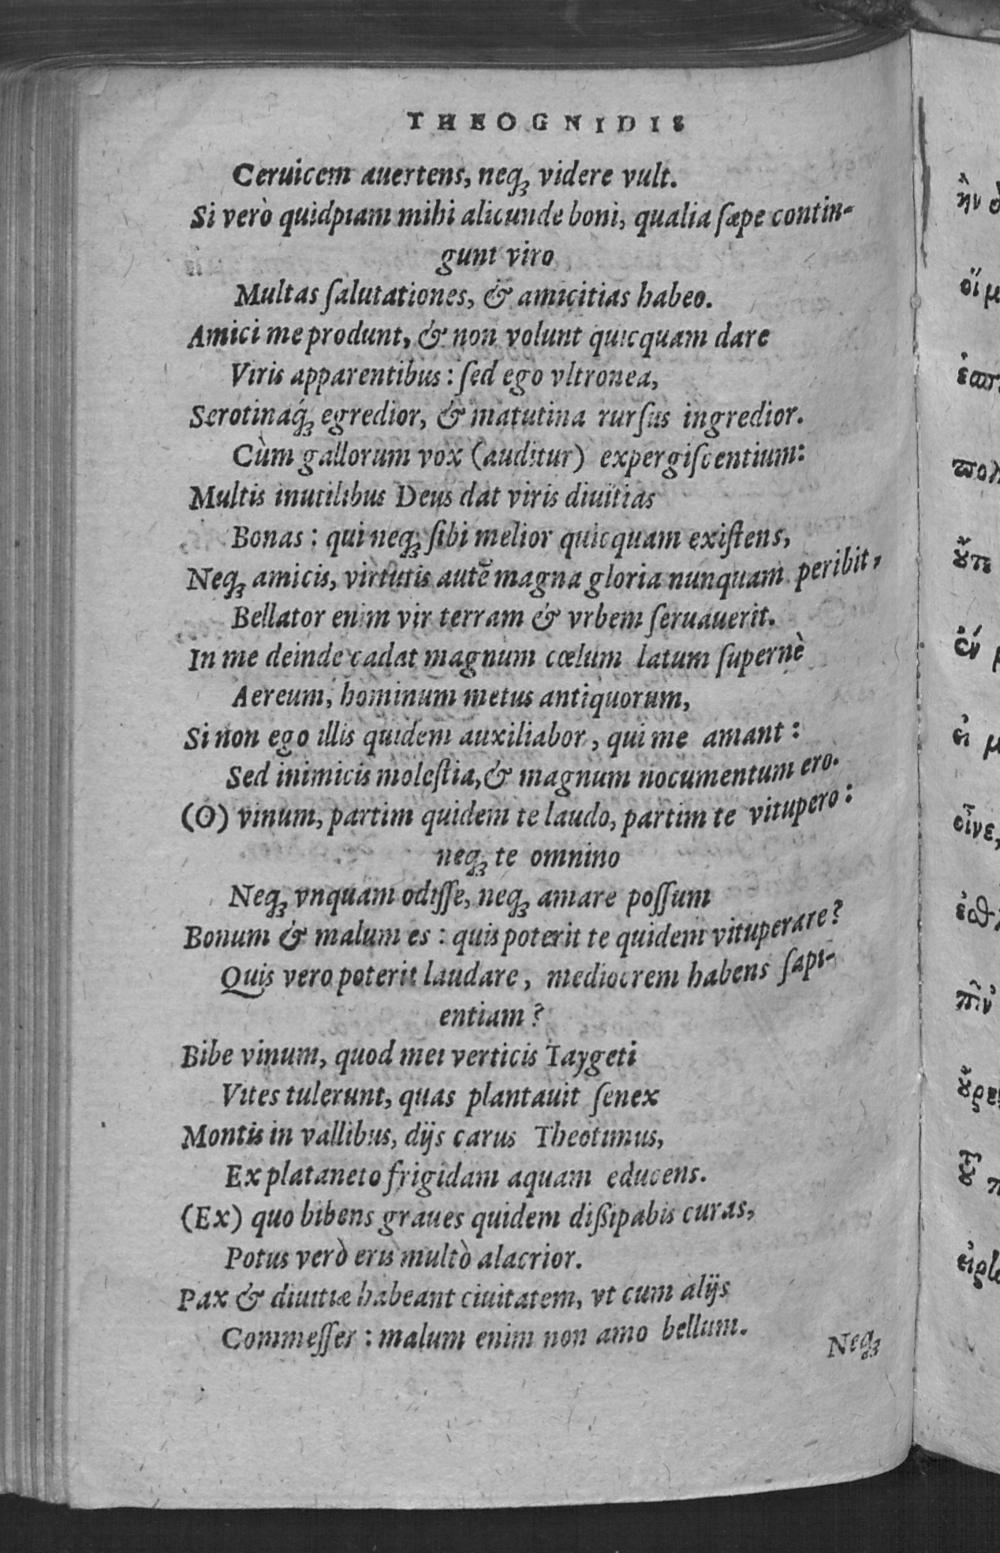 THEOGNIDIS
Ceruicem auertens, neqꝫ videre vult.
Si verò quidpiam mihi alicunde boni, qualia ſæpe contin-
gunt viro
Multas ſalutationes, & amicitias habeo.
Amici me produnt, & non volunt quicquam dare
Viris apparentibus: ſed ego vltronea,
Serotináqꝫ egredior, & matutina rurſus ingredior.
Cùm gallorum vox (auditur) expergiſcentium:
Multis inutilibus Deus dat viris diuitias
Bonas: qui neqꝫ ſibi melior quicquam exiſtens,
Neqꝫ amicis, virtutis autē magna gloria nunquam peribit,
Bellator enim vir terram & vrbem ſeruauerit.
In me deinde cadat magnum cœlum latum ſupernè
Aereum, hominum metus antiquorum,
Si non ego illis quidem auxiliabor, qui me amant:
Sed inimicis moleſtia, & magnum nocumentum ero.
(O) vinum, partim quidem te laudo, partim te vitupero:
neqꝫ te omnino
Neqꝫ vnquam odiſſe, neqꝫ amare poſſum
Bonum & malum es: quis poterit te quidem vituperare?
Quis vero poterit laudare, mediocrem habens ſapi-
entiam?
Bibe vinum, quod mei verticis Taygeti
Vites tulerunt, quas plantauit ſenex
Montis in vallibus, dijs carus Theotimus,
Ex plataneto frigidam aquam educens.
(Ex) quo bibens graues quidem diſsipabis curas,
Potus verò eris multò alacrior.
Pax & diuitiæ habeant ciuitatem, vt cum alijs
Commeſſer: malum enim non amo bellum.
Neqꝫ